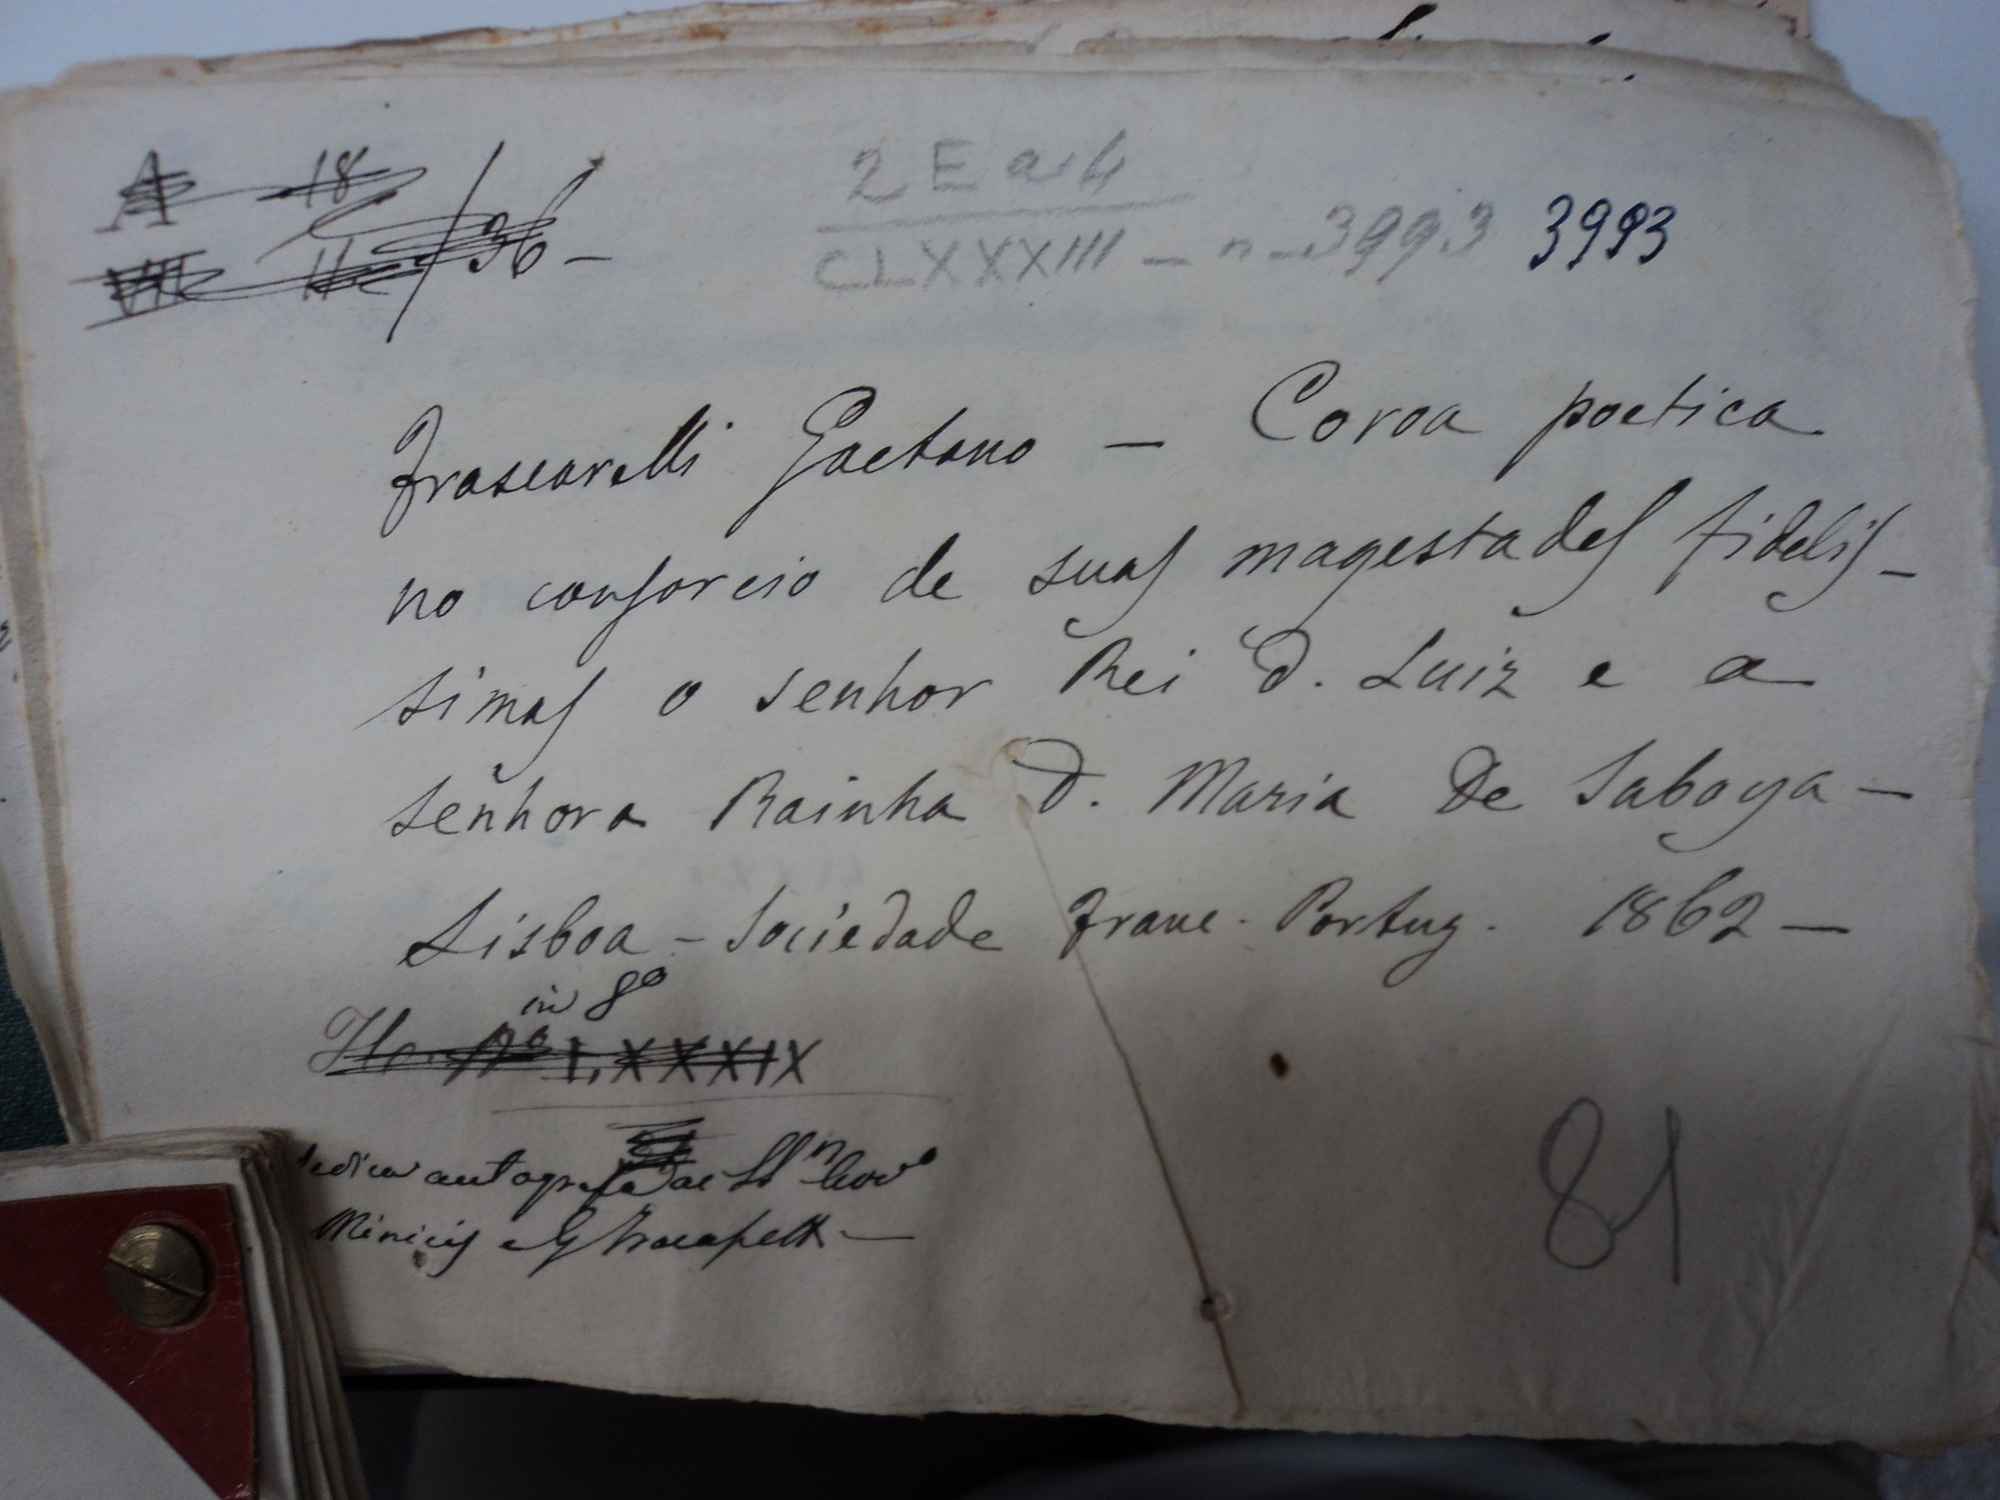 A 18
VII 11 /36 -
2 E a. 4
CLXXXIII - n - 3993 3993
Frascarelli Gaetano - Coroa poetica
no consorcio de suas magestades fidelis-
simas o senhor Rei D. Luiz e a
señhora Rainha D. Maria De Saboya -
Lisboa - Sociedade Franc. Portug. 1862 -
in 8º
LXXXIX
dedica autografa
Minicis
81